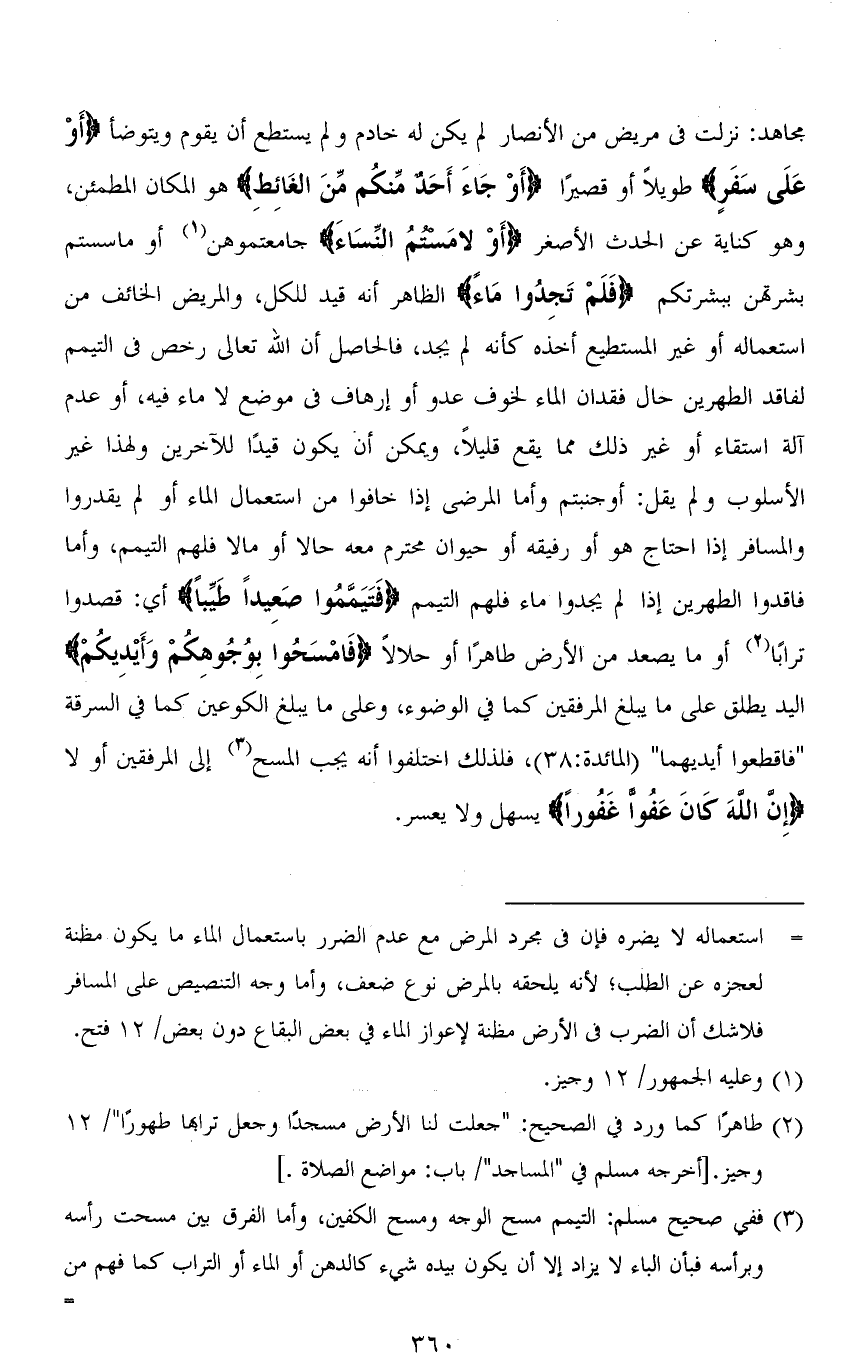 مجاهد: نزلت فى مريض من الأنصار لم يكن له خادم و لم يستطع أن يقوم ويتوضأ ﴿أَوْ
عَلَى سَفَرٍ﴾ طويلاً أو قصيرًا ﴿أَوْ جَاءَ أَحَدٌ مِّنكُم مِّنَ الغَائِطِ﴾ هو المكان المطمئن،
وهو كناية عن الحدث الأصغر ﴿أَوْ لامَسْتُمُ النِّسَاءَ﴾ جامعتموهن(١) أو ماسستم
بشرتهن ببشرتكم ﴿فَلَمْ تَجِدُوا مَاءً﴾ الظاهر أنه قيد للكل، والمريض الخائف من
استعماله أو غير المستطيع أخذه كأنه لم يجد، فالحاصل أن الله تعالى رخص فى التيمم
لفاقد الطهرين حال فقدان الماء لخوف عدو أو إرهاف فى موضع لا ماء فيه، أو عدم
آلة استقاء أو غير ذلك مما يقع قليلاً، ويمكن أن يكون قيدًا للآخرين ولهذا غير
الأسلوب و لم يقل: أوجنبتم وأما المرضى إذا خافوا من استعمال الماء أو لم يقدروا
والمسافر إذا احتاج هو أو رفيقه أو حيوان محترم معه حالا أو مالا فلهم التيمم، وأما
فاقدوا الطهرين إذا لم يجدوا ماء فلهم التيمم ﴿فَتَيَمَّمُوا صَعِيداً طَيِّباً﴾ أي: قصدوا
ترابًا(٢) أو ما يصعد من الأرض طاهرًا أو حلالاً ﴿فَامْسَحُوا بِوُجُوهِكُمْ وَأَيْدِيكُمْ﴾
اليد يطلق على ما يبلغ المرفقين كما في الوضوء، وعلى ما يبلغ الكوعين كما في السرقة
"فاقطعوا أيديهما" (المائدة:٣٨)، فلذلك اختلفوا أنه يجب المسح(٣) إلى المرفقين أو لا
﴿إِنَّ اللَّهَ كَانَ عَفُواًّ غَفُوراً﴾ يسهل ولا يعسر.
= استعماله لا يضره فإن فى مجرد المرض مع عدم الضرر باستعمال الماء ما يكون مظنة
لعجزه عن الطلب؛ لأنه يلحقه بالمرض نوع ضعف، وأما وجه التنصيص على المسافر
فلاشك أن الضرب فى الأرض مظنة لإعواز الماء في بعض البقاع دون بعض/ ١٢ فتح.
(١) وعليه الجمهور/ ١٢ وجيز.
(٢) طاهرًا كما ورد في الصحيح: "جعلت لنا الأرض مسجدًا وجعل ترابها طهورًا"/ ١٢
وجيز.[أخرجه مسلم في "المساجد"/ باب: مواضع الصلاة .]
(٣) ففي صحيح مسلم: التيمم مسح الوجه ومسح الكفين، وأما الفرق بين مسحت رأسه
وبرأسه فبأن الباء لا يزاد إلا أن يكون بيده شيء كالدهن أو الماء أو التراب كما فهم من
=
٣٦٠